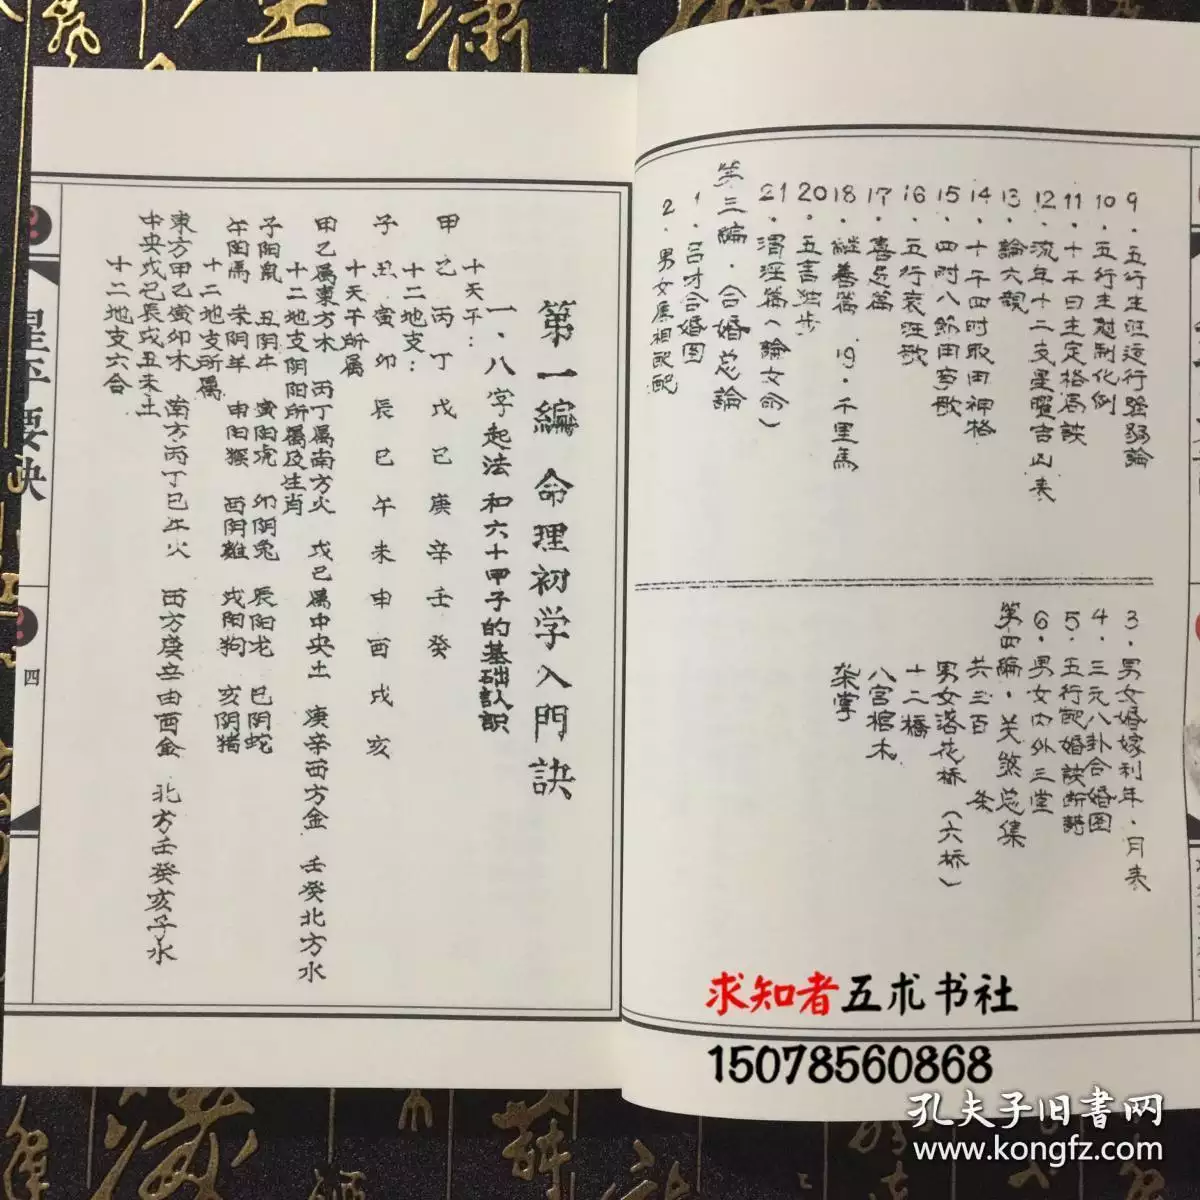 9．五行生旺运行强弱论
10．五行生尅制化例
11．十干日主定格局诀
12．流年十二支星曜吉凶表
13．論六親
14．十干四时取用神格
15．四时八节用事歌
16．五行衰旺歌
17．喜忌篇
18．繼善篇 19．千里馬
20．五言独步
21．渭泾篇（論女命）
第三編．合婚总論
1．吕才合婚图
2．男女屬相配配
3．男女婚嫁利年．月表
4．三元八卦合婚图
5．五行配婚诀断诗
6．男女内外三堂
第四編．关煞总集
共三百 条
男女落花桥（六桥）
十二橋
八宫棺木
架掌
第一編 命理初学入門訣
一．八字起法和六十甲子的基础认识
十天干：
甲乙丙丁戊己庚辛壬癸
十二地支：
子丑寅卯辰巳午未申酉戌亥
十天干所属
甲乙属東方木 丙丁属南方火 戊己属中央土 庚辛西方金 壬癸北方水
十二地支阴阳所属及生肖
子阳鼠 丑阴牛 寅阳虎 卯阴兔 辰阳龙 巳阴蛇
午阳馬 未阴羊 申阳猴 酉阴雞 戌阳狗 亥阴猪
十二地支所属
東方甲乙寅卯木 南方丙丁巳午火 西方庚辛申酉金 北方壬癸亥子水
中央戊己辰戌丑未土
十二地支六合
星平要诀
四
求知者五术书社
15078560868
孔夫子旧書网
www.kongfz.com